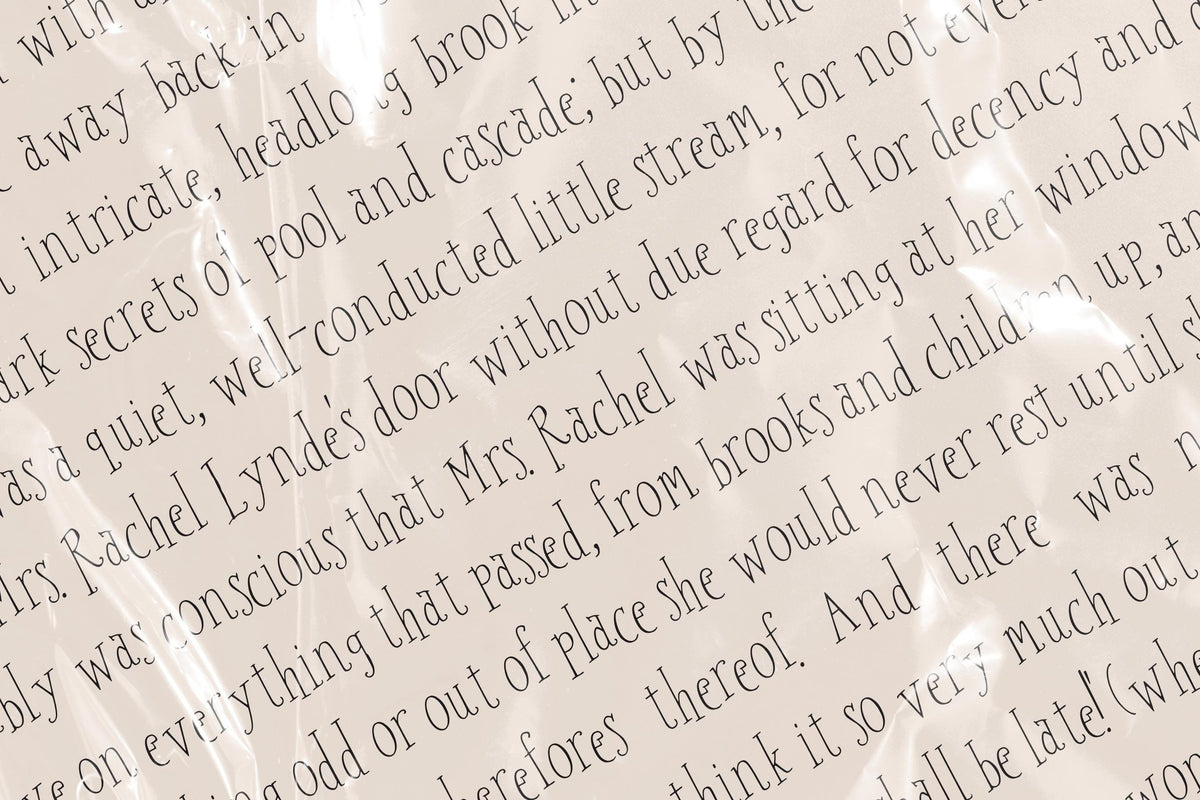 with
away back in
intricate, headlong brook in
ark secrets of pool and cascade; but by the
was a quiet, well-conducted little stream, for not even
Mrs. Rachel Lynde's door without due regard for decency and
bly was conscious that Mrs. Rachel was sitting at her window
ve on everything that passed, from brooks and children up, an
ing odd or out of place she would never rest until s
herefores thereof. And there was n
think it so very much out
hall be late!' (whe
won